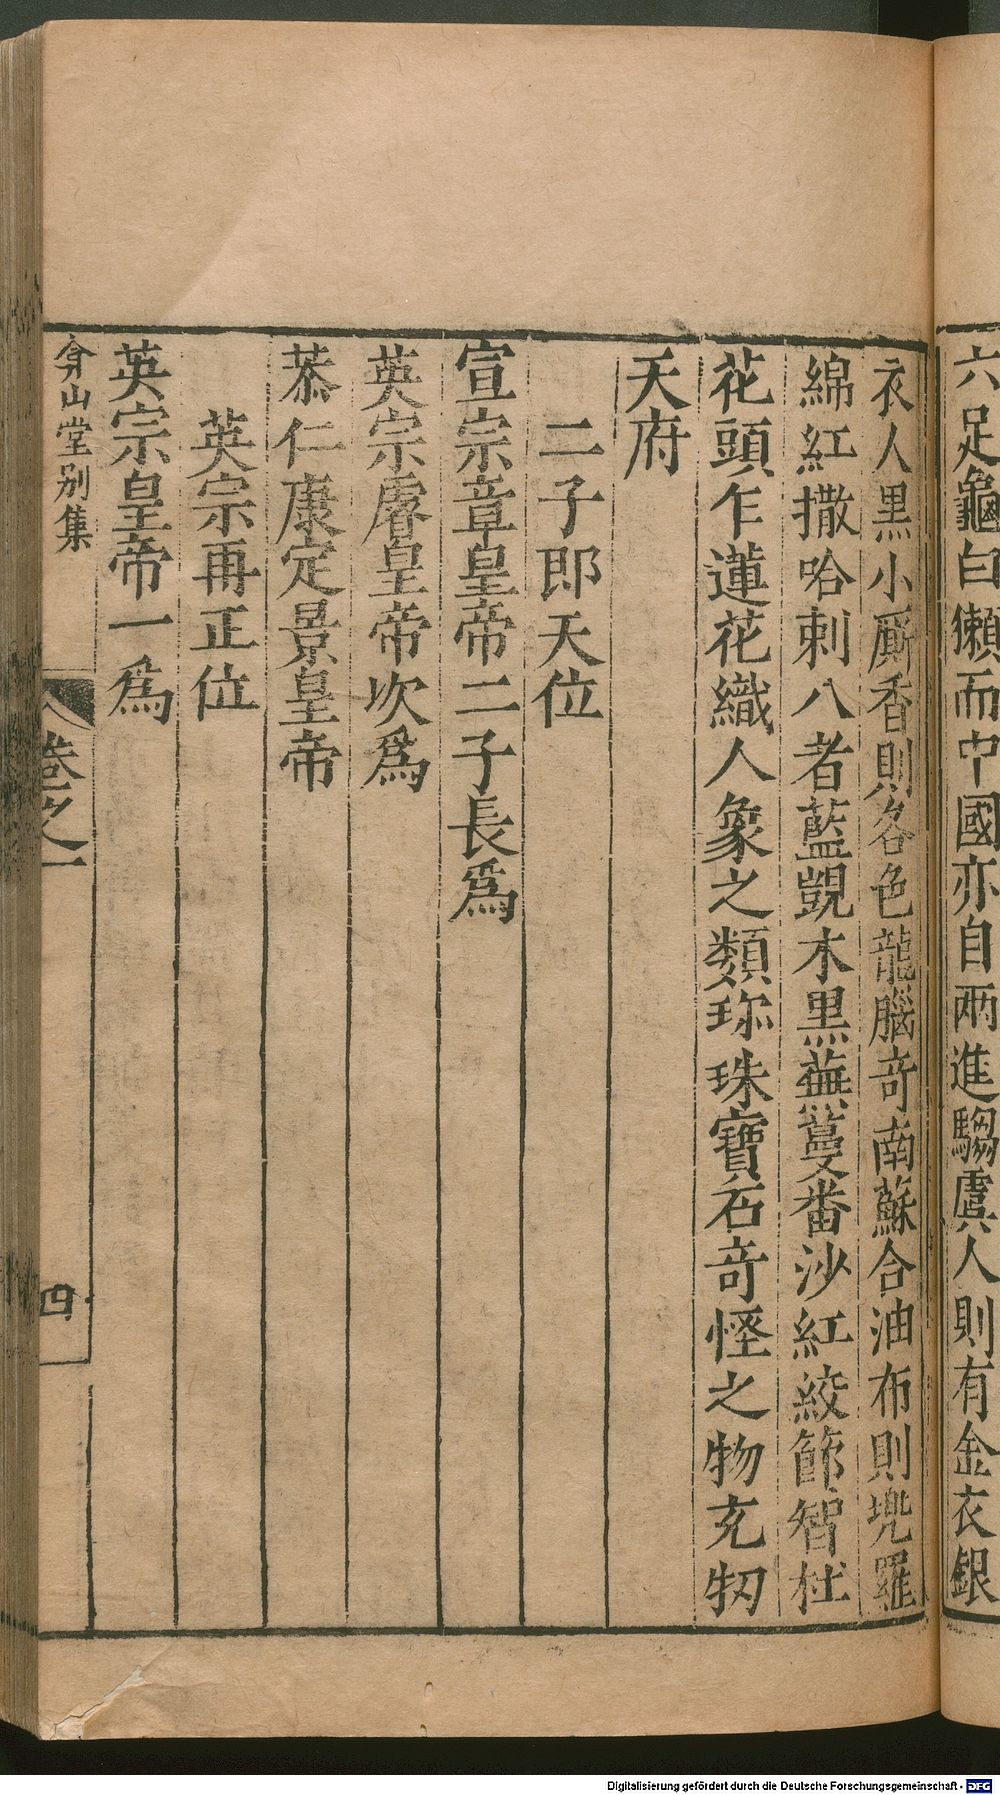 六足龜白獺而中國亦自兩進騶虞人則有金衣銀
衣人黑小廝香則各色龍腦奇南蘇合油布則兠羅
綿紅撒哈剌八者藍覬木黑蕪蔓番沙紅絞節智杜
花頭乍蓮花織人象之類珎珠寶石奇怪之物充牣
天府
二子即天位
宣宗章皇帝二子長爲
英宗睿皇帝次爲
恭仁康定景皇帝
英宗再正位
英宗皇帝一爲
弇山堂别集
卷之一
四
Digitalisierung gefördert durch die Deutsche Forschungsgemeinschaft - DFG